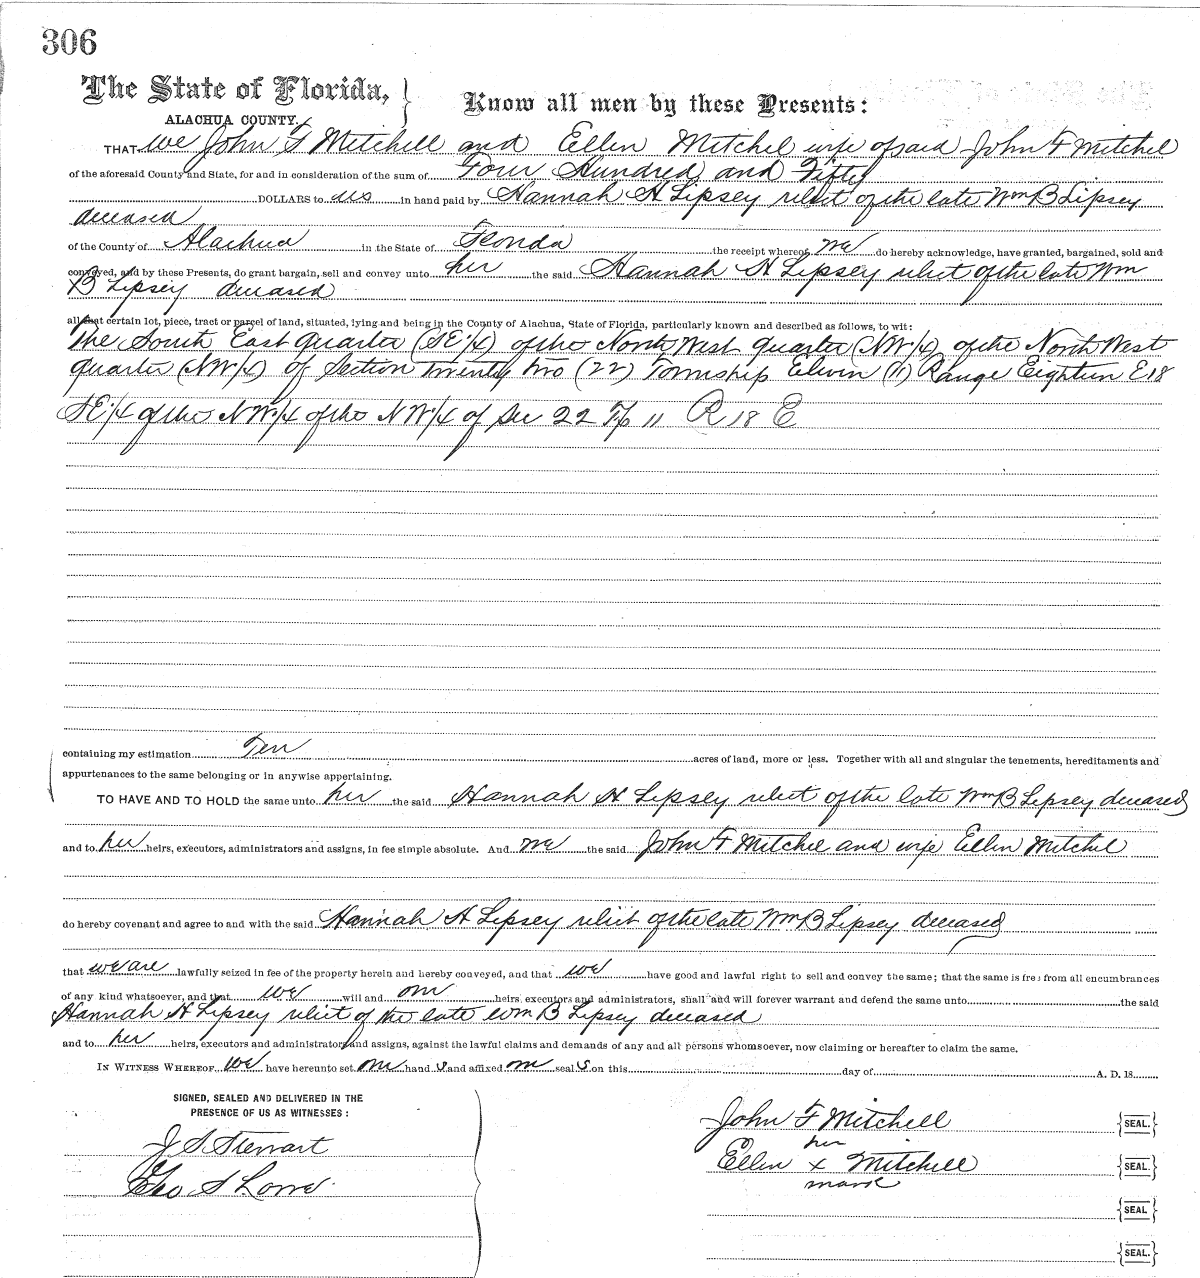 306
The State of Florida,
ALACHUA COUNTY.
Know all men by these Presents:
THAT we John F Mitchell and Ellen Mitchel wife of said John F Mitchel
of the aforesaid County and State, for and in consideration of the sum of Four Hundred and Fifty
DOLLARS to us in hand paid by Hannah H Lipsey relict of the late Wm B Lipsey
deceased
of the County of Alachua in the State of Florida the receipt whereof we do hereby acknowledge, have granted, bargained, sold and
conveyed, and by these Presents, do grant bargain, sell and convey unto her the said Hannah H Lipsey relict of the late Wm
B Lipsey deceased
all that certain lot, piece, tract or parcel of land, situated, lying and being in the County of Alachua, State of Florida, particularly known and described as follows, to wit:
The South East Quarter (SE 1/4) of the North West quarter (NW 1/4) of the North West
quarter (NW 1/4) of Section twenty two (22) Township Eleven (11) Range Eighteen E 18
SE 1/4 of the NW 1/4 of the NW 1/4 of Sec 22 Tp 11 R 18 E
containing my estimation Ten acres of land, more or less. Together with all and singular the tenements, hereditaments and
appurtenances to the same belonging or in anywise appertaining.
TO HAVE AND TO HOLD the same unto her the said Hannah H Lipsey relict of the late Wm B Lipsey deceased
and to her heirs, executors, administrators and assigns, in fee simple absolute. And we the said John F Mitchel and wife Ellen Mitchel
do hereby covenant and agree to and with the said Hannah H Lipsey relict of the late Wm B Lipsey deceased
that we are lawfully seized in fee of the property herein and hereby conveyed, and that we have good and lawful right to sell and convey the same; that the same is free from all encumbrances
of any kind whatsoever, and that we will and our heirs, executors and administrators, shall and will forever warrant and defend the same unto the said
Hannah H Lipsey relict of the late Wm B Lipsey deceased
and to her heirs, executors and administrators and assigns, against the lawful claims and demands of any and all persons whomsoever, now claiming or hereafter to claim the same.
IN WITNESS WHEREOF we have hereunto set our hand s and affixed our seal s on this day of A. D. 18
SIGNED, SEALED AND DELIVERED IN THE
PRESENCE OF US AS WITNESSES:
J S Stewart
Geo S Lowe
John F Mitchell SEAL.
her
Ellen x Mitchell SEAL.
mark
SEAL.
SEAL.